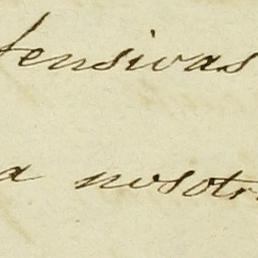 tensivas
a nosotr